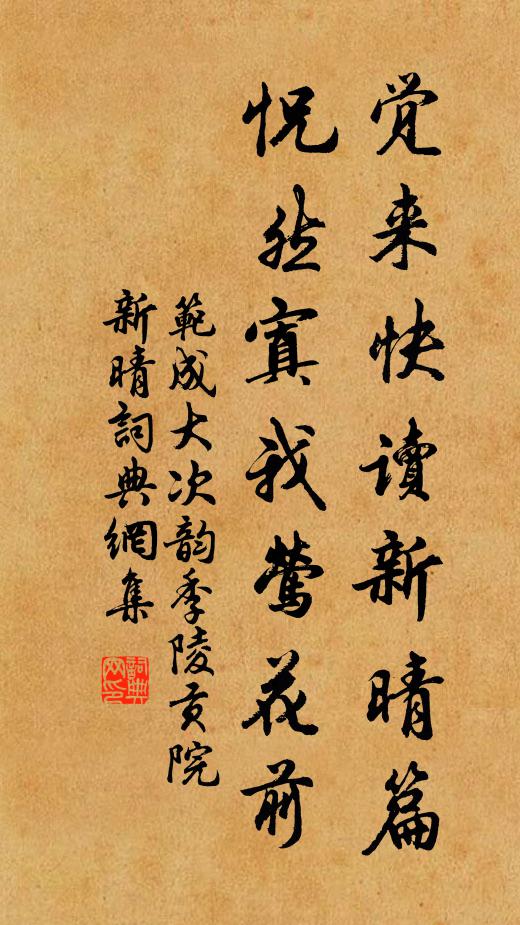 觉来快讀新晴篇
怳然寘我鶯花前
範成大次韵季陵贡院
新晴詞典網集
詞典
网印